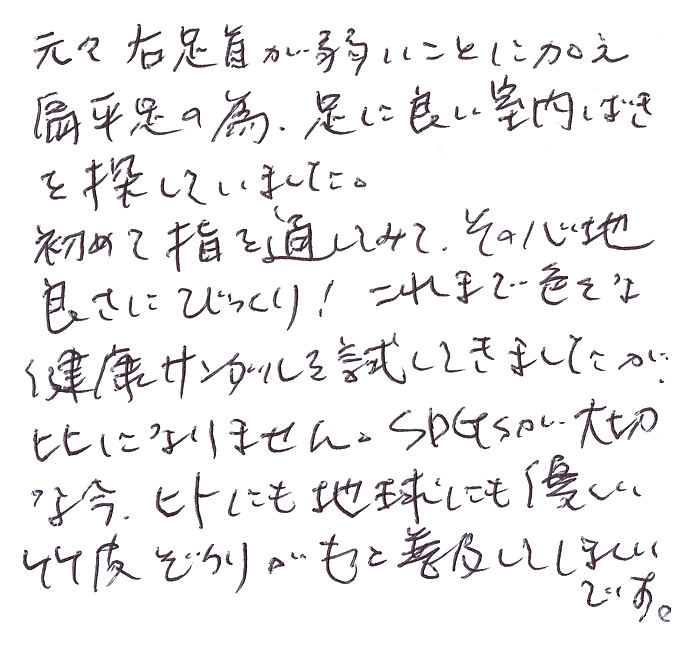 元々右足首が弱いことに加え
扁平足の為、足に良い室内ばき
を探していました。
初めて指を通してみて、その心地
良さにびっくり! これまで色々な
健康サンダルを試してきましたが、
比になりません。SDGsが大切
な今、ヒトにも地球にも優しい
竹皮ぞうりがもっと普及してほしい
です。